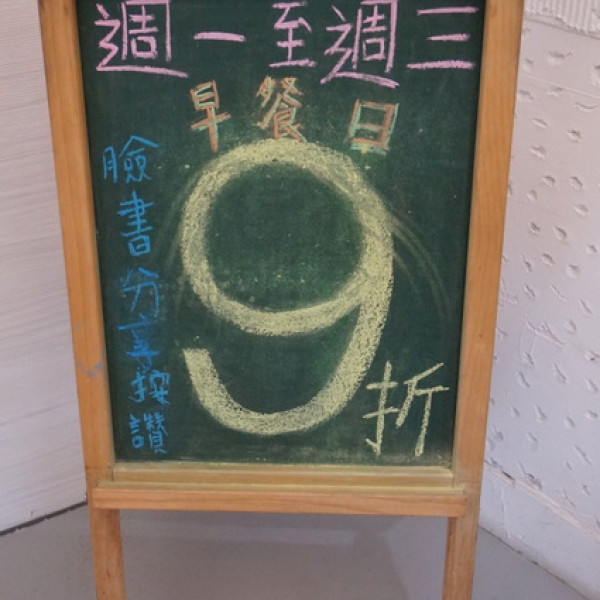 週一至週三
早餐日
9折
臉書分享按讚